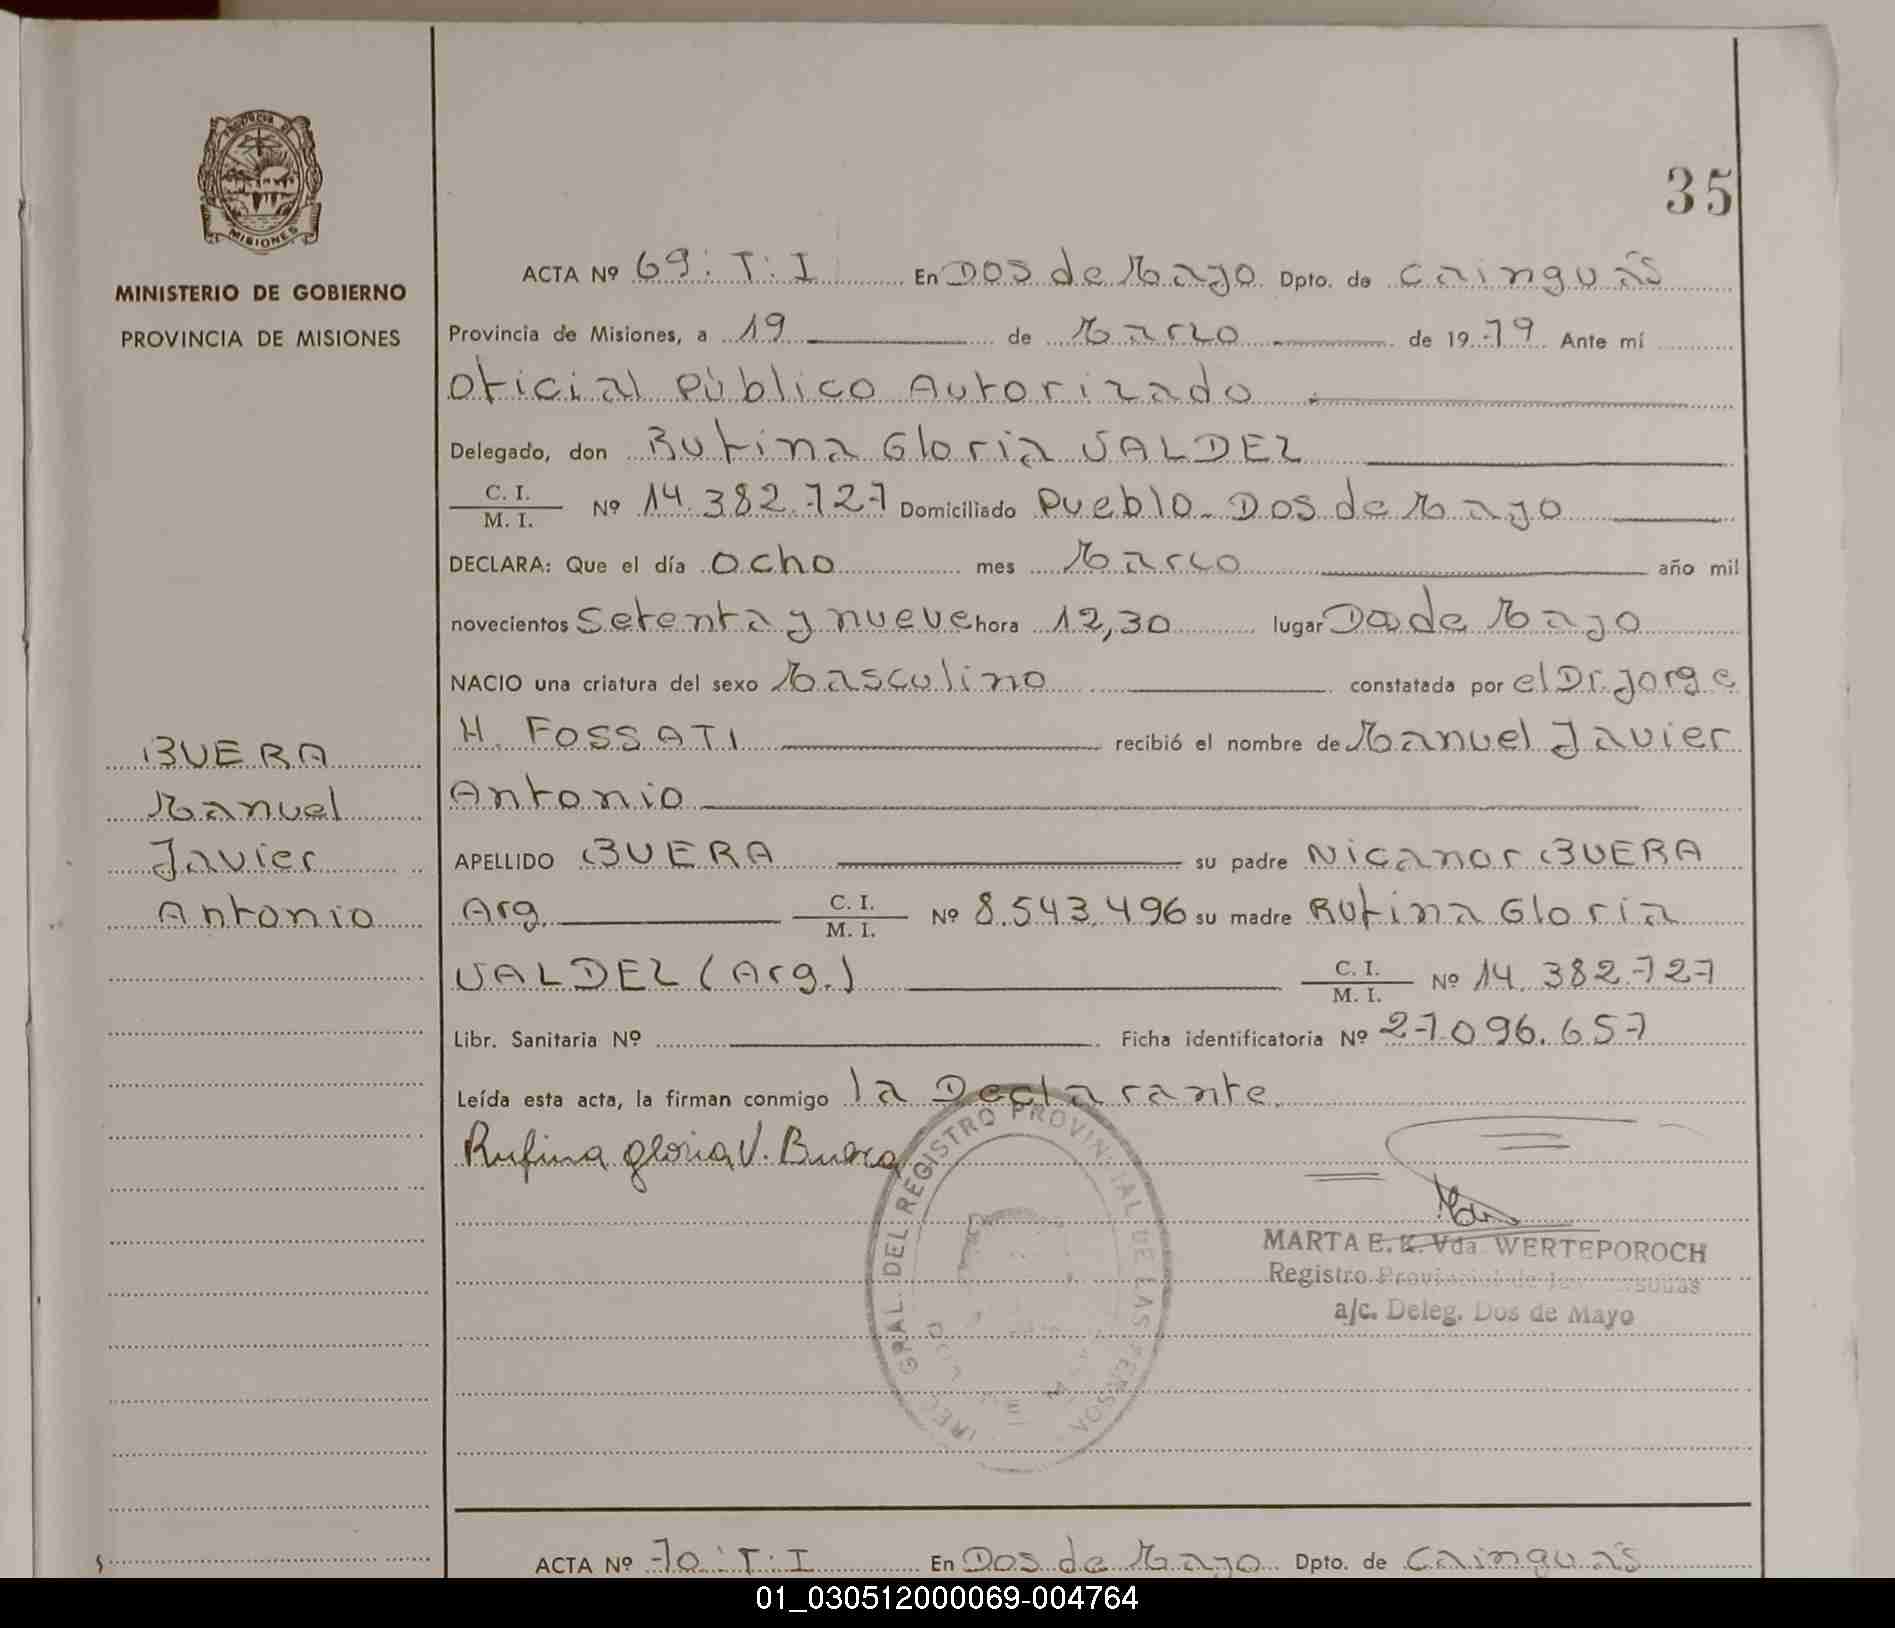 PROVINCIA DE
MISIONES
MINISTERIO DE GOBIERNO
PROVINCIA DE MISIONES
35
ACTA Nº 69: T: I En Dos de Mayo Dpto. de Cainguás
Provincia de Misiones, a 19 de Marzo de 1979 Ante mí
Oficial Público Autorizado
Delegado, don Rufina Gloria VALDEZ
C. I.
M. I. Nº 14.382.727 Domiciliado Pueblo - Dos de Mayo
DECLARA: Que el día Ocho mes Marzo año mil
novecientos Setenta y nueve hora 12,30 lugar Dos de Mayo
NACIO una criatura del sexo Masculino constatada por el Dr. Jorge
H. FOSSATI recibió el nombre de Manuel Javier
Antonio
APELLIDO BUERA su padre Nicanor BUERA
Arg. C. I.
M. I. Nº 8.543.496 su madre Rufina Gloria
VALDEZ (Arg.) C. I.
M. I. Nº 14.382.727
Libr. Sanitaria Nº Ficha identificatoria Nº 27.096.657
Leída esta acta, la firman conmigo la Declarante.
BUERA
Manuel
Javier
Antonio
Rufina gloria V. Buera
GRAL. DEL REGISTRO PROVINCIAL DE LAS PERSONA
MARTA E. K. Vda. WERTEPOROCH
Registro Provincial de las Personas
a/c. Deleg. Dos de Mayo
ACTA Nº 70: T: I En Dos de Mayo Dpto. de Cainguás
01_030512000069-004764